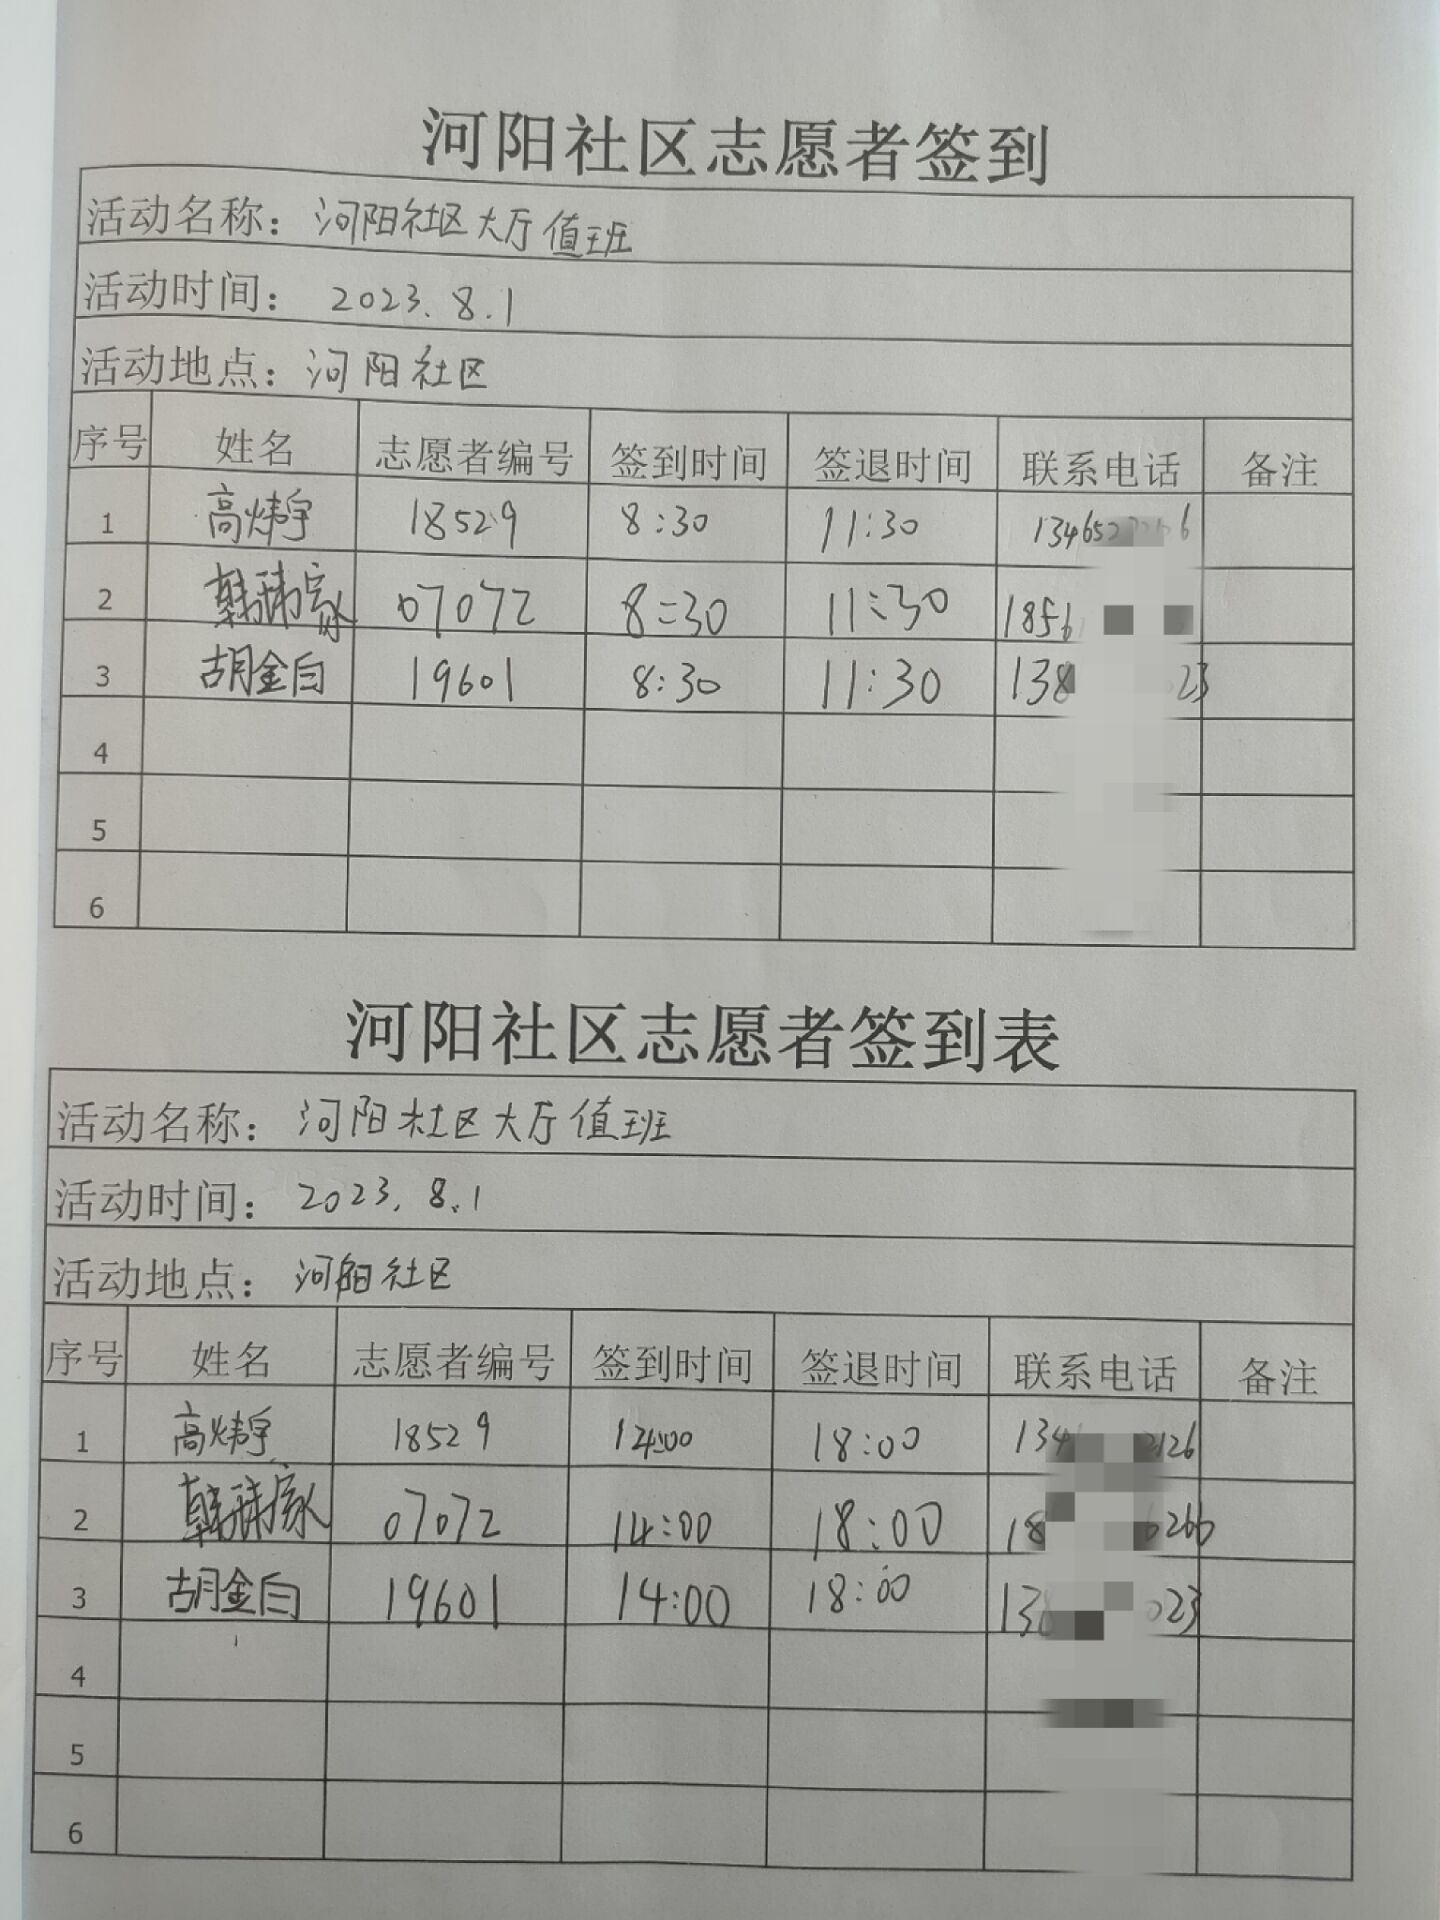 河阳社区志愿者签到
活动名称：河阳社区大厅值班
活动时间：2023.8.1
活动地点：河阳社区
序号 姓名 志愿者编号 签到时间 签退时间 联系电话 备注
1 高炜宇 18529 8:30 11:30
2 韩 07072 8:30 11:30
3 胡金白 19601 8:30 11:30
4
5
6
河阳社区志愿者签到表
活动名称：河阳社区大厅值班
活动时间：2023.8.1
活动地点：河阳社区
序号 姓名 志愿者编号 签到时间 签退时间 联系电话 备注
1 高炜宇 18529 14:00 18:00
2 韩 07072 14:00 18:00
3 胡金白 19601 14:00 18:00
4
5
6